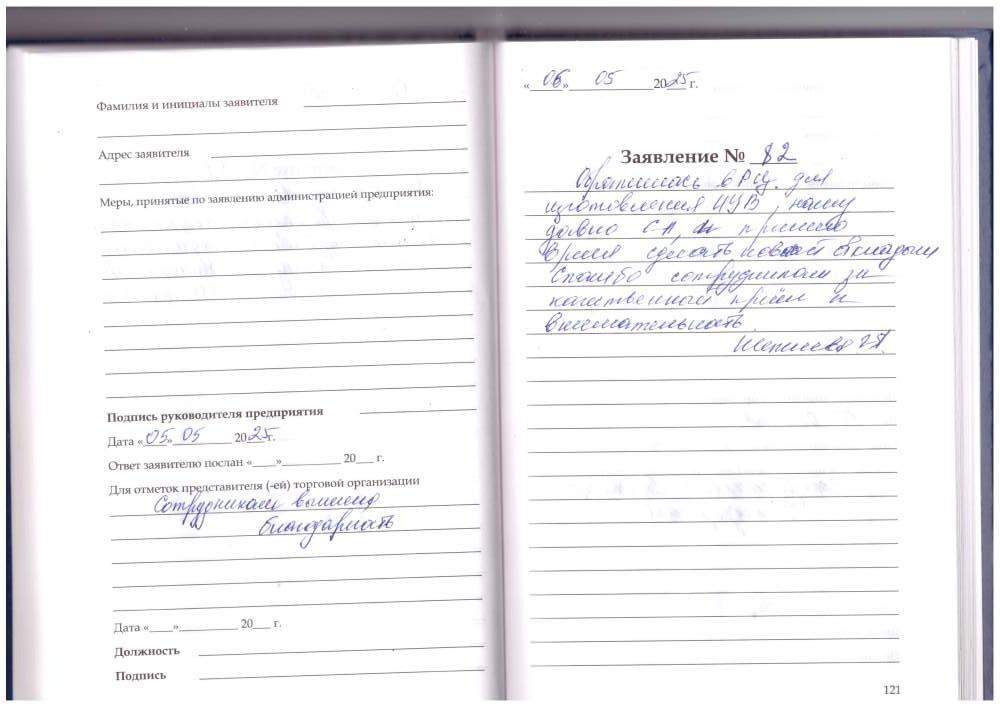 Фамилия и инициалы заявителя
Адрес заявителя
Меры, принятые по заявлению администрацией предприятия:
Подпись руководителя предприятия
Дата «05» 05 2025 г.
Ответ заявителю послан «___»__________ 20___ г.
Для отметок представителя (-ей) торговой организации
Сотрудникам вынесена
благодарность
Дата «___»__________ 20___ г.
Должность
Подпись
«06» 05 2025 г.
Заявление № 82
Обратилась в РИЦ для
изготовления
давно СА, и пришло
время сделать новой
Спасибо сотрудникам за
качественный приём и
внимательность.
121